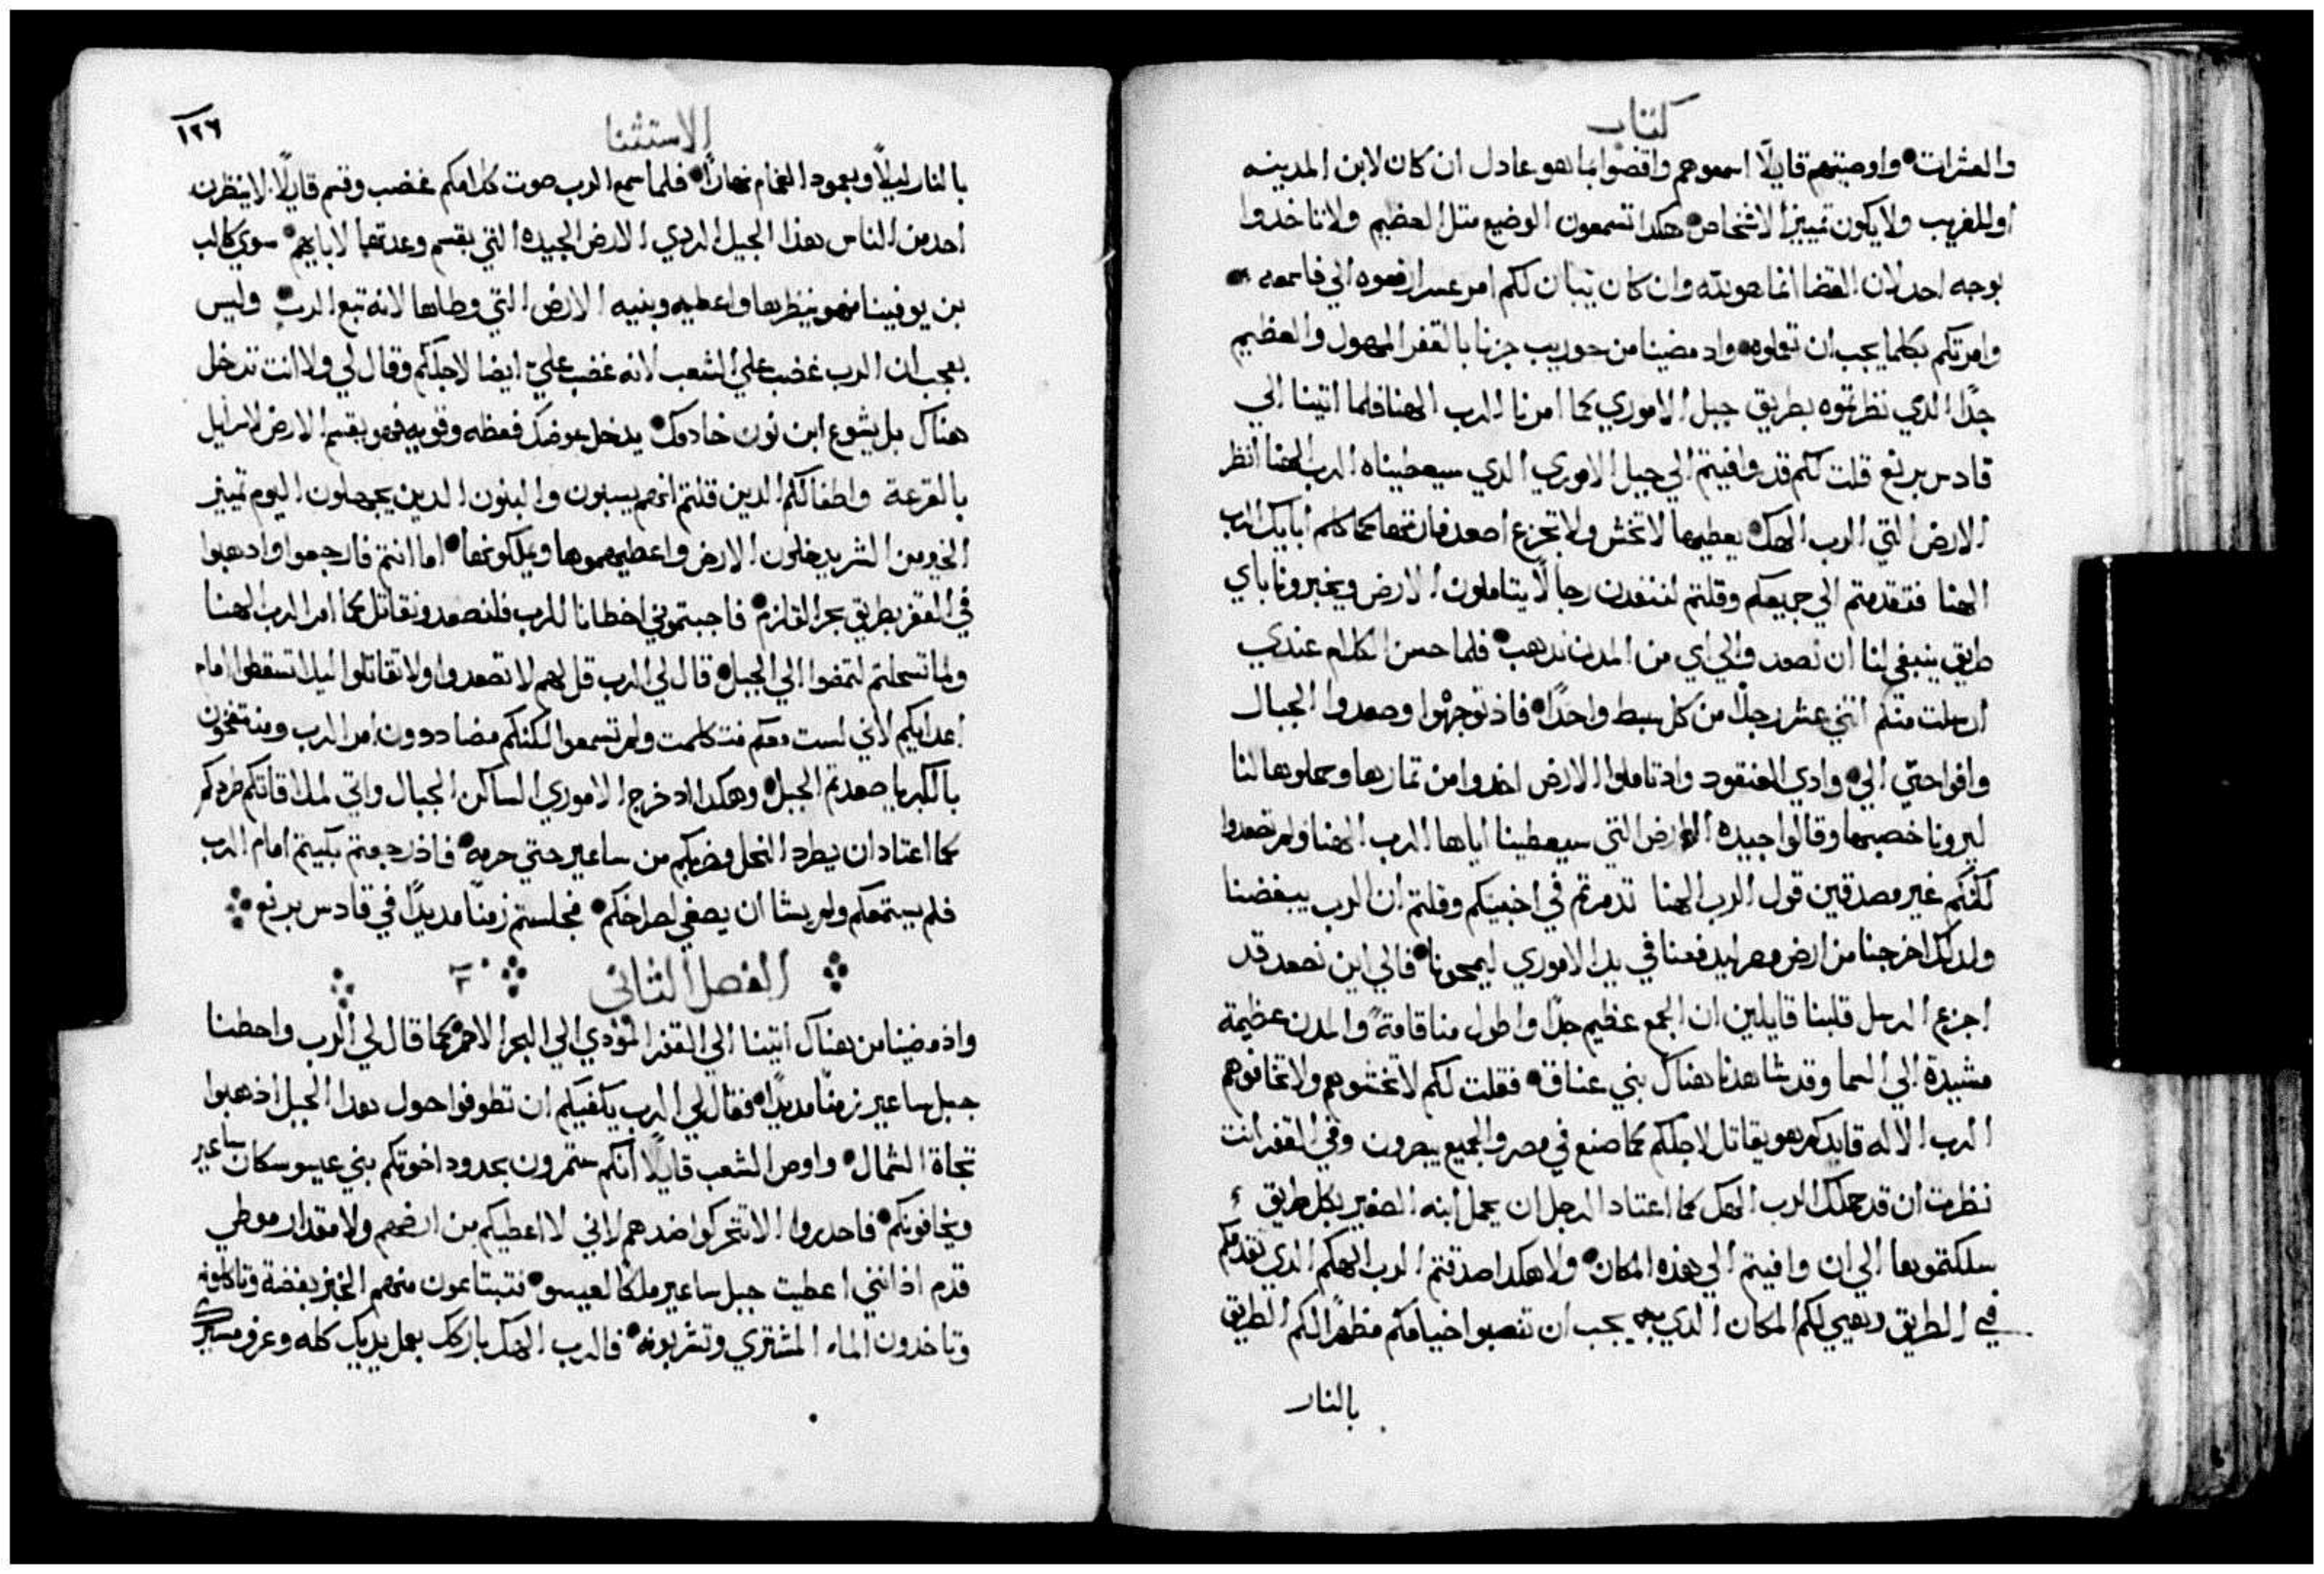 كتاب
والعشرات • واوصيتهم قايلًا اسمعوهم واقضوا بما هو عادل ان كان لابن المدينه
او للغريب ولا يكون تمييز الاشخاص • هكدا تسمعون الوضيع متل العظيم ولا تاخدوا
بوجه احد لان القضا انما هو لله وان كان يتبان لكم امر عسر ارفعوه الي فاسمعه •
وامرتكم بكلما يجب ان تعملوه • واد مضينا من حوريب جزنا بالقفر المهول والعظيم
جدًا الدي نظرتموه بطريق جبل الاموري كما امرنا الرب الهنا فلما اتينا الي
قادس برنع قلت لكم قد وافيتم الي جبل الاموري الدي سيعطيناه الرب الهنا انظر
الارض التي الرب الهك يعطيها لا تخش ولا تجزع اصعد فان كما كلم ابايك الرب
الهنا فتقدمتم الي جميعكم وقلتم لننفدن رجالًا يتاملون الارض ويخبرونا باي
طريق ينبغي لنا ان نصعد والي اي من المدن ندهب • فلما حسن الكلام عندي
ارسلت منكم اتني عشر رجلًا من كل سبط واحدًا • فاذ توجهوا وصعدوا الجبال
وافوا حتي الي وادي العنقود واد تاملوا الارض اخدوا من تمارها وحملوها لنا
ليرونا خصبها وقالوا جيده الارض التي سيعطينا اياها الرب الهنا ولم تصعدوا
لكنكم غير مصدقين قول الرب الهنا تدمرتم في اخبيتكم وقلتم ان الرب يبغضنا
ولدلك اخرجنا من ارض مصر ليدفعنا في يد الاموري ليمحونا • فالي اين نصعد قد
اجزع الرسل قلبنا قايلين ان الجمع عظيم جدًا واطول منا قامةً والمدن عظيمة
مشيدة الي السما وقد شاهدنا هناك بني عناق • فقلت لكم لا تخشوهم ولا تخافوهم
الرب الاله قايدكم هو يقاتل لاجلكم كما صنع في مصر والجميع يبصرون وفي القفر انت
نظرت ان قد حملك الرب الهك كما اعتاد الرجل ان يحمل ابنه الصغير بكل طريق
سلكتموها الي ان وافيتم الي هذه المكان • ولا هكدا صدقتم الرب الهكم الدي تقدمكم
في الطريق وهيي لكم المكان الدي يجب ان تنصبوا خيامكم مظهرًا لكم الطريق
بالنار
الاستثنا
١٢٦
بالنار ليلًا وبعمود الغمام نهارًا • فلما سمع الرب صوت كلامكم غضب وقسم قايلًا لا ينظرن
احد من الناس هذا الجيل الردي الارض الجيده التي بقسم وعدتها لابايهم • سوي كالب
بن يوفينا فهو ينظرها واعطيه وبنيه الارض التي وطاها لانه تبع الرب • وليس
بعجب ان الرب غضب علي الشعب لانه غضب علي ايضا لاجلكم وقال لي ولا انت تدخل
هناك بل يشوع ابن نون خادمك يدخل عوضك فعظه وقويه فهو يقسم الارض لاسرايل
بالقرعة واطفالكم الدين قلتم انهم يسبون والبنون الدين يجهلون اليوم تمييز
الخير من الشر يدخلون الارض واعطيهموها ويملكونها • اما انتم فارجعوا وادهبوا
في القفر بطريق بحر القلزم • فاجبتموني اخطانا للرب فلنصعد ونقاتل كما امر الرب الهنا
ولما تسلحتم لتمضوا الي الجبل • قال لي الرب قل لهم لا تصعدوا ولا تقاتلوا ليلا تسقطوا امام
اعدايكم لاني لست معكم فتكلمت ولم تسمعوا لكنكم مضاددون امر الرب ومنتفخون
بالكبريا صعدتم الجبل • وهكدا اد خرج الاموري الساكن الجبال واتي لملاقاتكم طردكم
كما اعتاد ان يطرد النحل وضربكم من ساعير حتي حرمه • فاذ رجعتم بكيتم امام الرب
فلم يستمعكم ولم يشا ان يصغي لصراخكم • فجلستم زمنًا مديدًا في قادس برنع
الفصل الثاني ٢
واذ مضينا من هناك اتينا الي القفر المؤدي الي البحر الاحمر كما قال لي الرب واحطنا
جبل ساعير زمنًا مديدًا • فقال لي الرب يكفيكم ان تطوفوا حول هدا الجبل اذهبوا
تجاة الشمال • واوص الشعب قايلًا انكم ستمرون بحدود اخوتكم بني عيسو سكان ساعير
ويخافونكم • فاحدروا الا تتحركوا ضدهم لاني لا اعطيكم من ارضهم ولا مقدار موطي
قدم اذ انني اعطيت جبل ساعير ملكًا لعيسو • فتبتاعون منهم الخبز بفضة وتاكلونه
وتاخدون الماء المشتري وتشربونه • فالرب الهك باركك بعمل يديك كله وعرف مسيرك